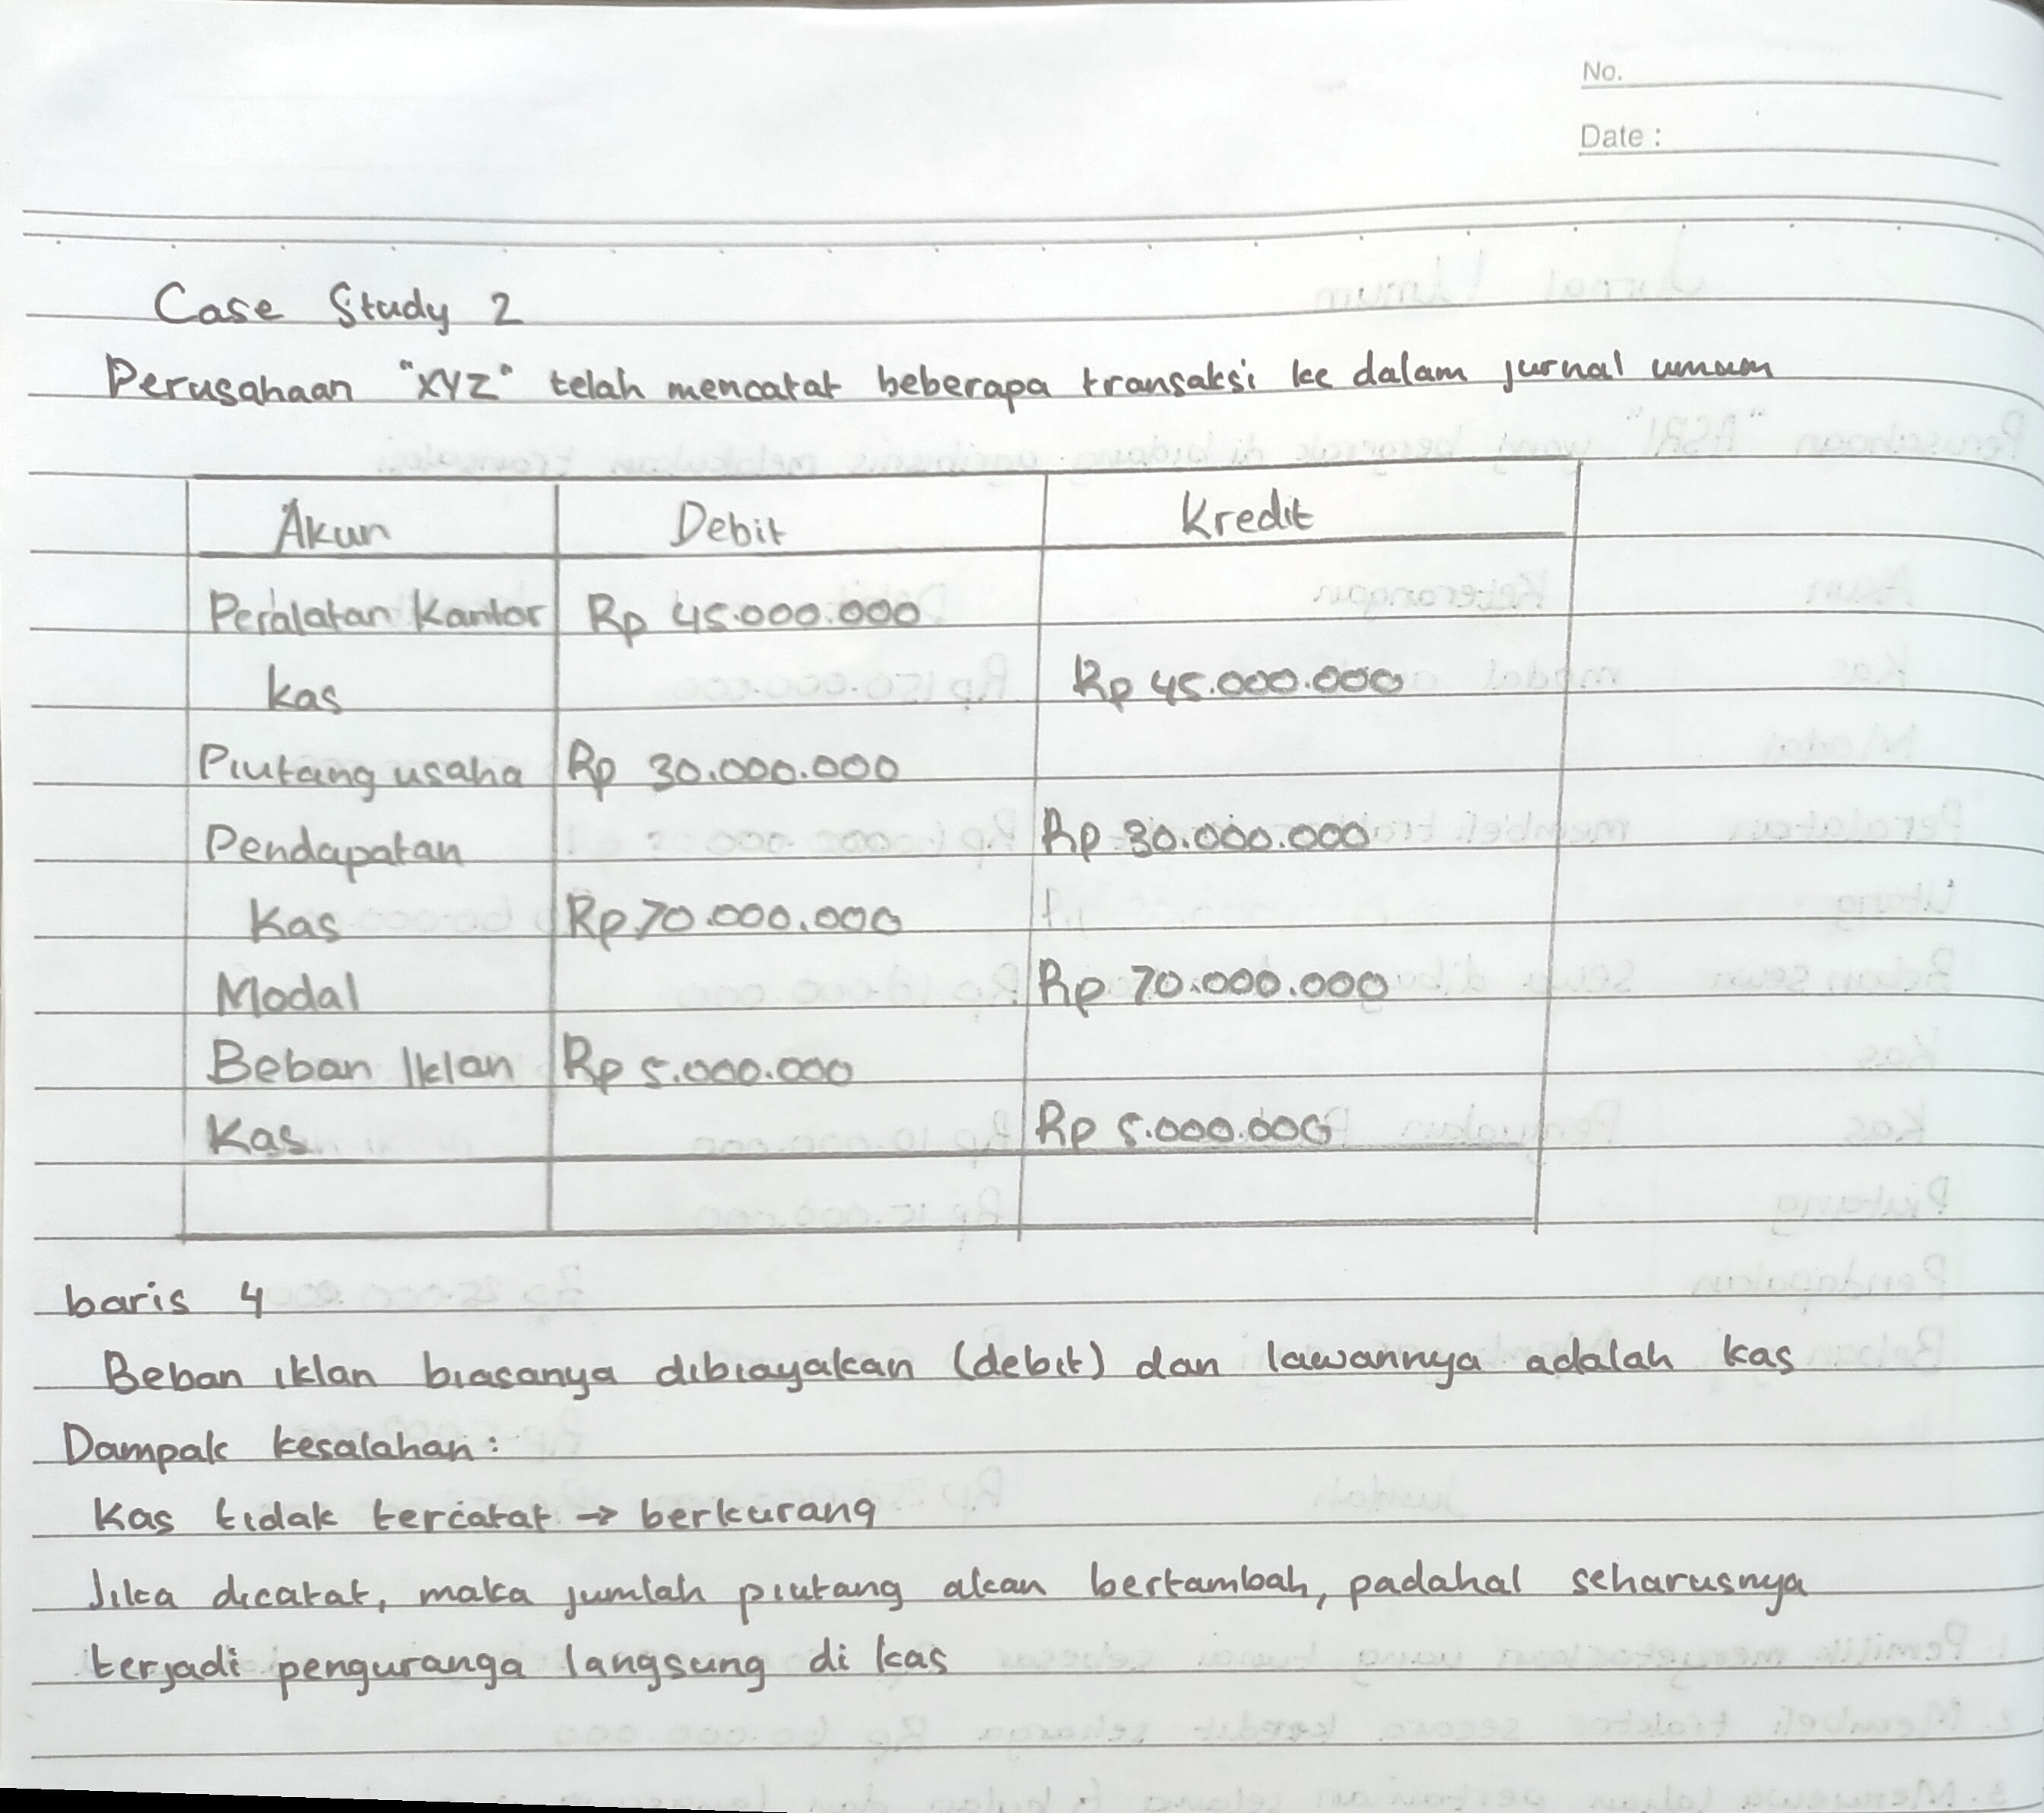 No.
Date :
Case Study 2
Perusahaan "XYZ" telah mencatat beberapa transaksi ke dalam jurnal umum
Akun Debit Kredit
Peralatan Kantor Rp 45.000.000
Kas Rp 45.000.000
Piutang usaha Rp 30.000.000
Pendapatan Rp 30.000.000
Kas Rp 70.000.000
Modal Rp 70.000.000
Beban Iklan Rp 5.000.000
Kas Rp 5.000.000
baris 4
Beban iklan biasanya dibiayakan (debit) dan lawannya adalah kas
Dampak kesalahan:
Kas tidak tercatat → berkurang
Jika dicatat, maka jumlah piutang akan bertambah, padahal seharusnya
terjadi penguranga langsung di kas